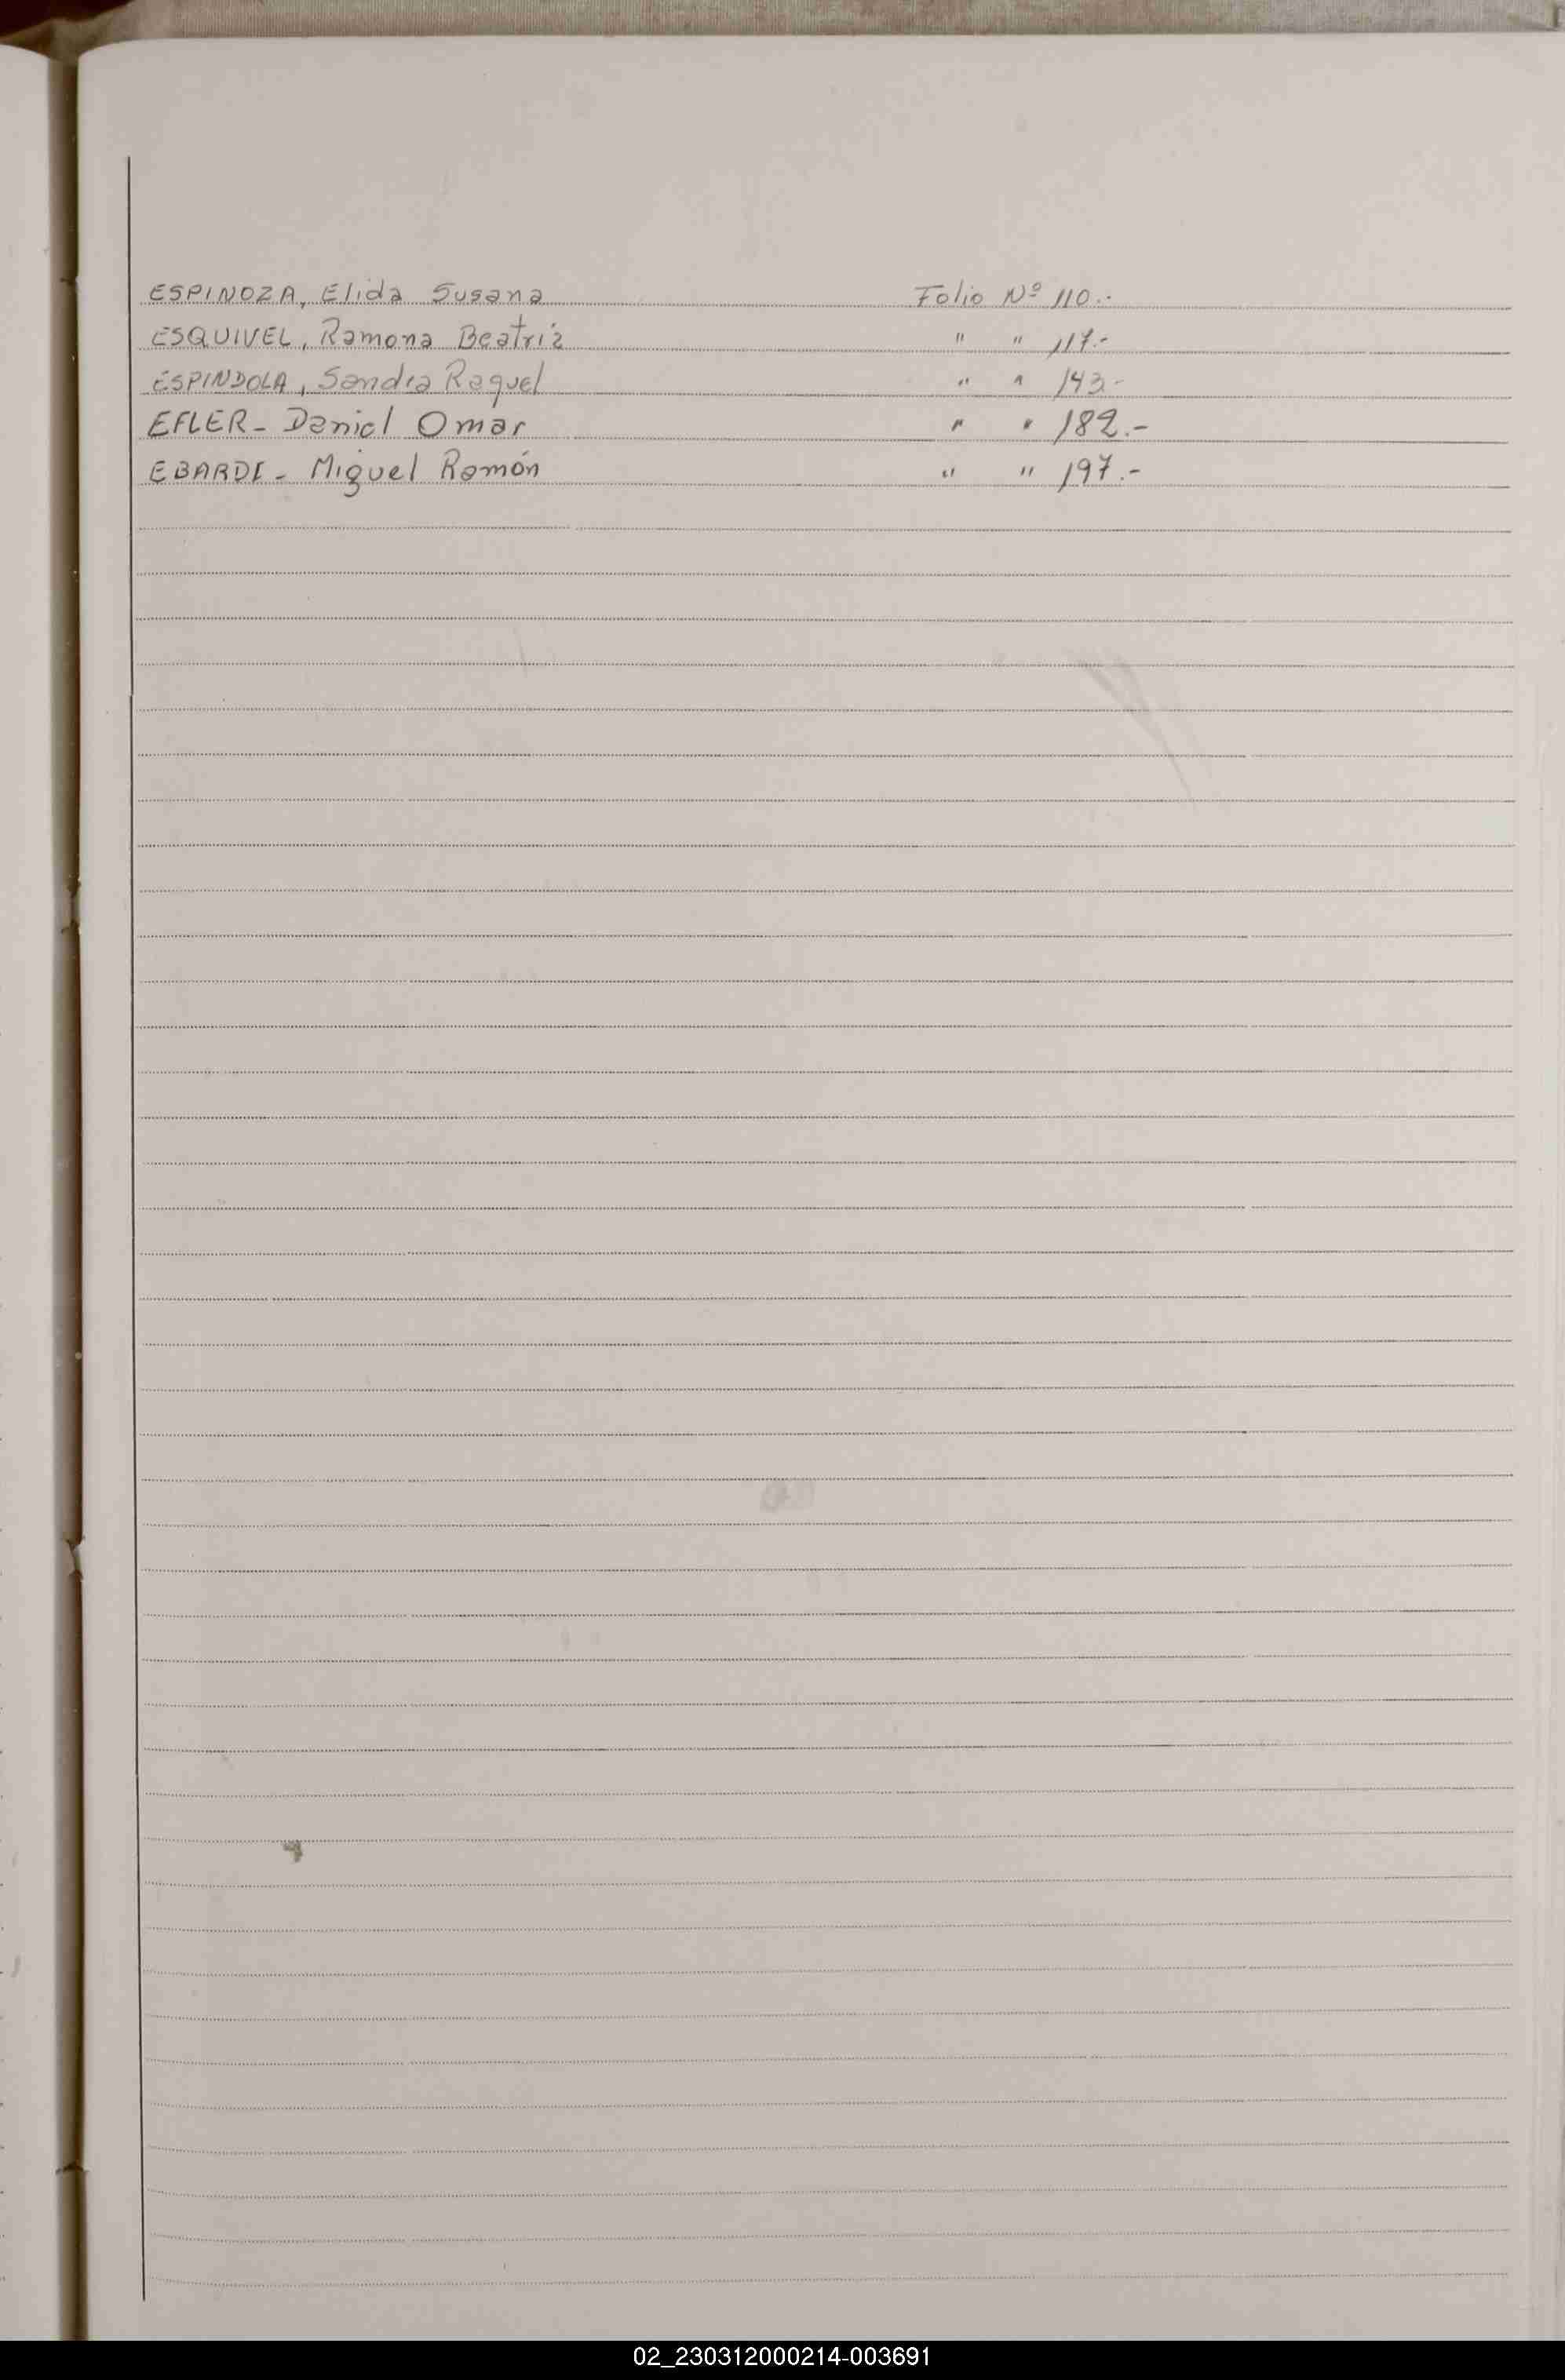 ESPINOZA, Elida Susana Folio Nº 110.-
ESQUIVEL, Ramona Beatriz " " 117.-
ESPINDOLA, Sandra Raquel " " 143.-
EFLER - Daniel Omar " " 182.-
EBARDI - Miguel Ramón " " 197.-
02_230312000214-003691